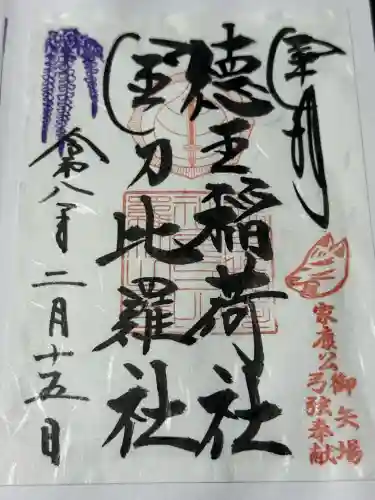 奉拝
徳王稲荷社
金刀比羅社
令和八年二月十五日
家康公御矢場
弓弦奉献